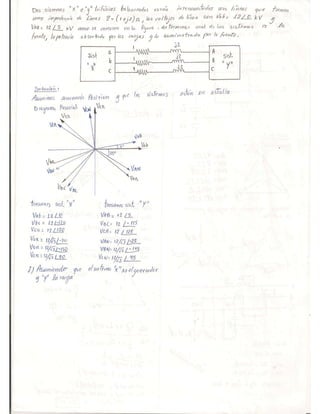 Dos sistemas "x" e "y" trifásicos balanceados están interconectados con líneas que tienen
una impedancia de línea Z=(1+j2)Ω, los voltajes de línea son Vab= 12∠0 kV y
VAB= 12∠5 kV como se muestra en la figura, determinar cual de los sistemas es la
fuente, la potencia absorbida por las cargas y la suministrada por la fuente.
Sist "x"
a
b
c
1
1
1
j2
j2
j2
A
B
C
Sist "Y"
Solución:
Asumimos secuencia Positiva y que los sistemas están en estrella
Diagrama Fasorial
Tensiones sist "x"
tensiones sist "Y"
Vab = 12∠0
VAB = 12∠5
Vbc = 12∠-120
VBC = 12∠-115
Vca = 12∠120
VCA = 12∠125
Van = 12/√3∠-30
VAN = 12/√3∠-25
Vbn = 12/√3∠-150
VBN = 12/√3∠-145
Vcn = 12/√3∠90
VCN = 12/√3∠95
1) Asumiendo que el sistema "x" es el generador
y "Y" la carga